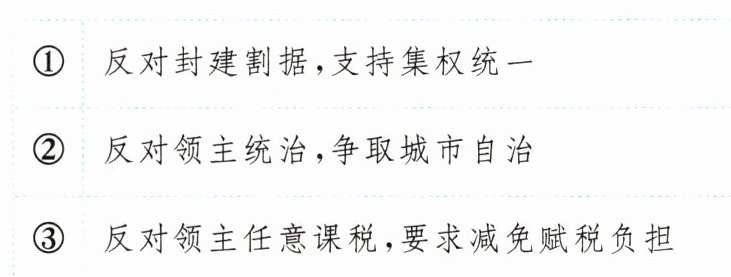 ① 反对封建割据,支持集权统一
② 反对领主统治,争取城市自治
③ 反对领主任意课税,要求减免赋税负担